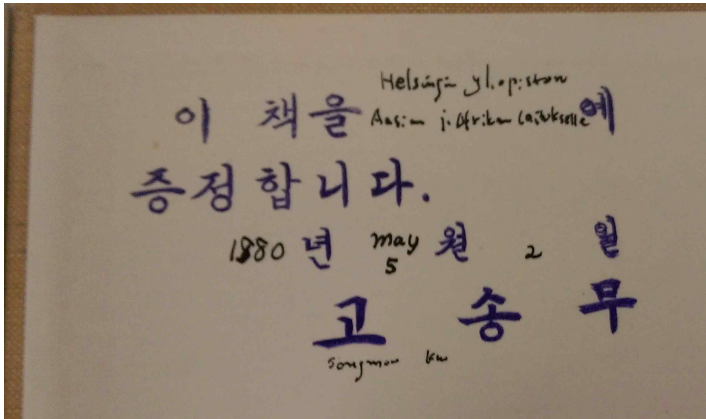 Helsingin yliopiston
이 책을 Aasian ja Afrikan laitokselle 에
증정합니다.
1980 년 May 월 2 일
5
고 송 무
Songmoo Kho